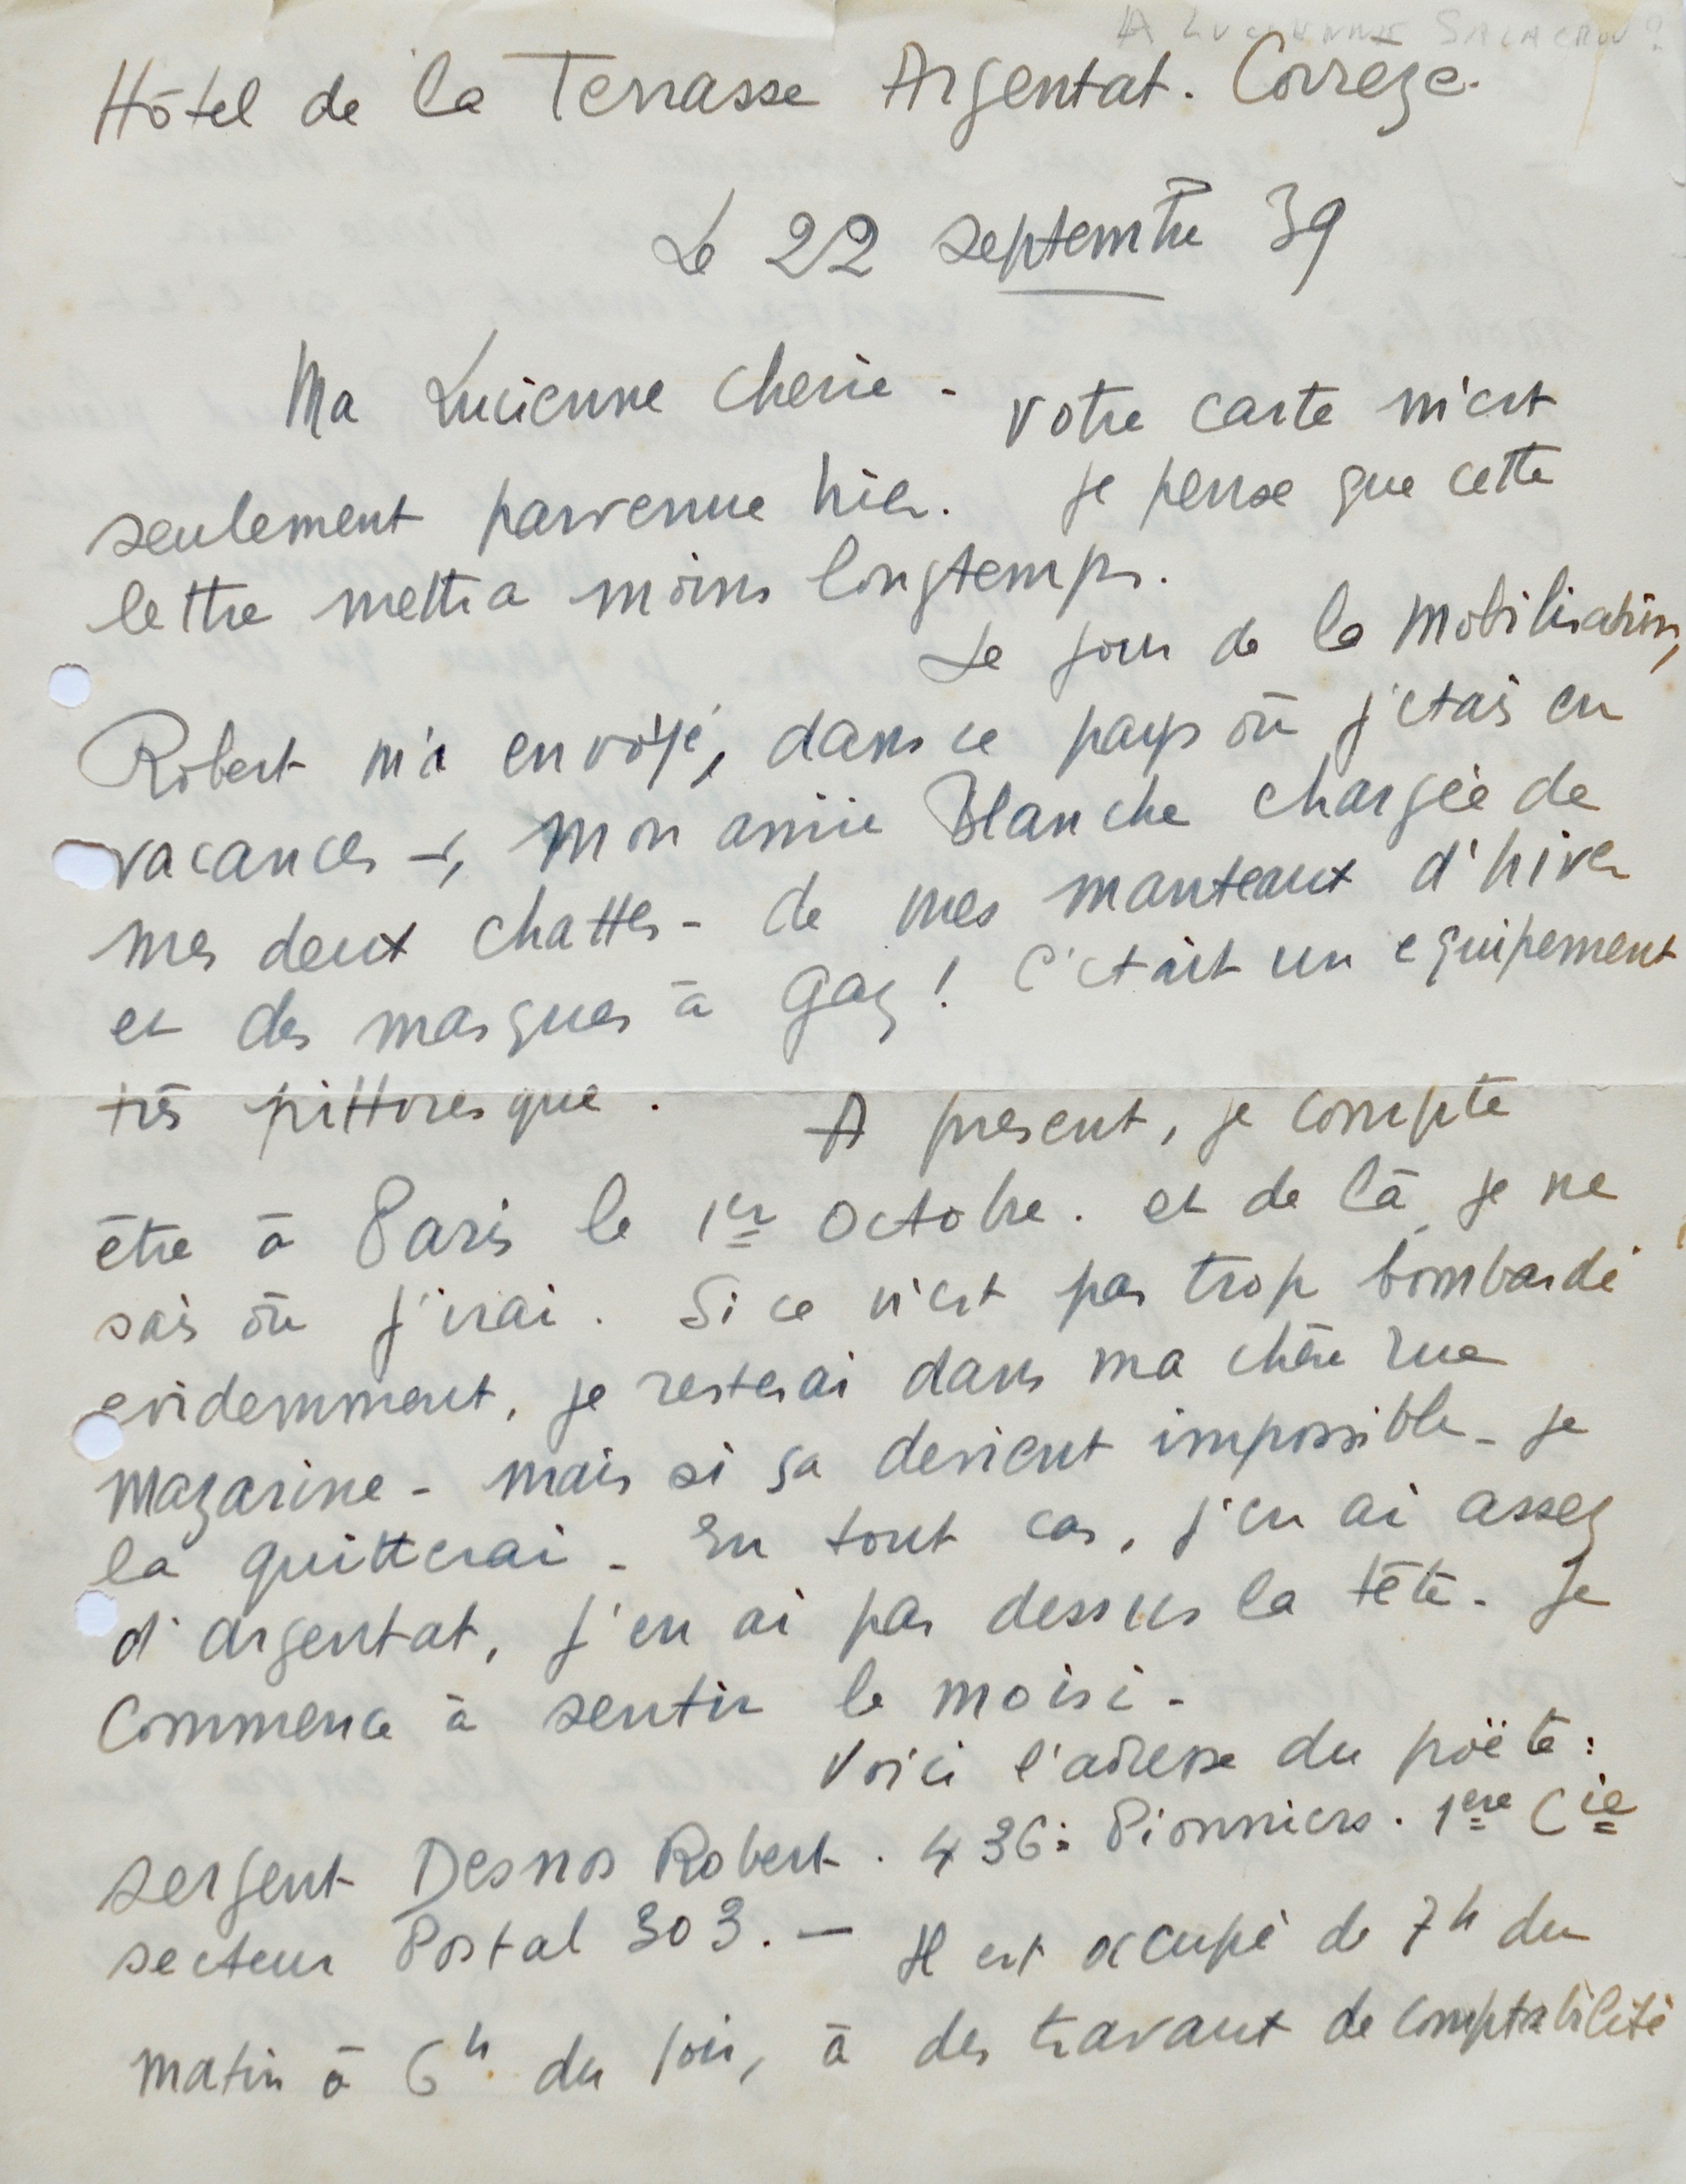 A LUCIENNE SALACROU ?
Hôtel de la Terrasse Argentat. Corrèze.
Le 22 septembre 39
Ma Lucienne cherie - votre carte m'est
seulement parvenue hier. je pense que cette
lettre mettra moins longtemps.
Le jour de la mobilisation,
Robert m'a envoyé, dans ce pays où j'etais en
vacances -, mon amie Blanche chargée de
mes deux chattes - de mes manteaux d'hiver
et des masques à gaz ! C'etait un equipement
très pittoresque . A present, je compte
être à Paris le 1er Octobre . et de là, je ne
sais où j'irai . Si ce n'est pas trop bombardé
evidemment, je resterai dans ma chère rue
Mazarine - mais si ça devient impossible - je
la quitterai - En tout cas, j'en ai assez
d'argentat, j'en ai par dessus la tête - Je
Commence à sentir le moisi -
Voici l'adresse du poëte :
Sergent Desnos Robert . 436e Pionniers . 1ere Cie
secteur Postal 303. — Il est occupé de 7h du
matin à 6h du soir, à des travaux de comptabilité